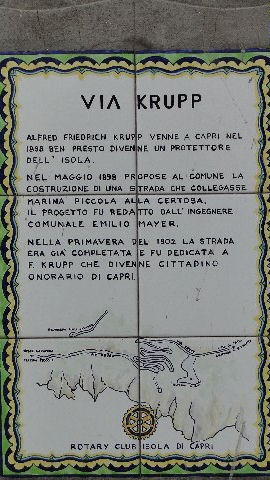 VIA KRUPP
ALFRED FRIEDRICH KRUPP VENNE A CAPRI NEL
1898 BEN PRESTO DIVENNE UN PROTETTORE
DELL' ISOLA.
NEL MAGGIO 1898 PROPOSE AL COMUNE LA
COSTRUZIONE DI UNA STRADA CHE COLLEGASSE
MARINA PICCOLA ALLA CERTOSA.
IL PROGETTO FU REDATTO DALL'INGEGNERE
COMUNALE EMILIO MAYER.
NELLA PRIMAVERA DEL 1902 LA STRADA
ERA GIÀ COMPLETATA E FU DEDICATA A
F. KRUPP CHE DIVENNE CITTADINO
ONORARIO DI CAPRI.
ROTARY CLUB ISOLA DI CAPRI